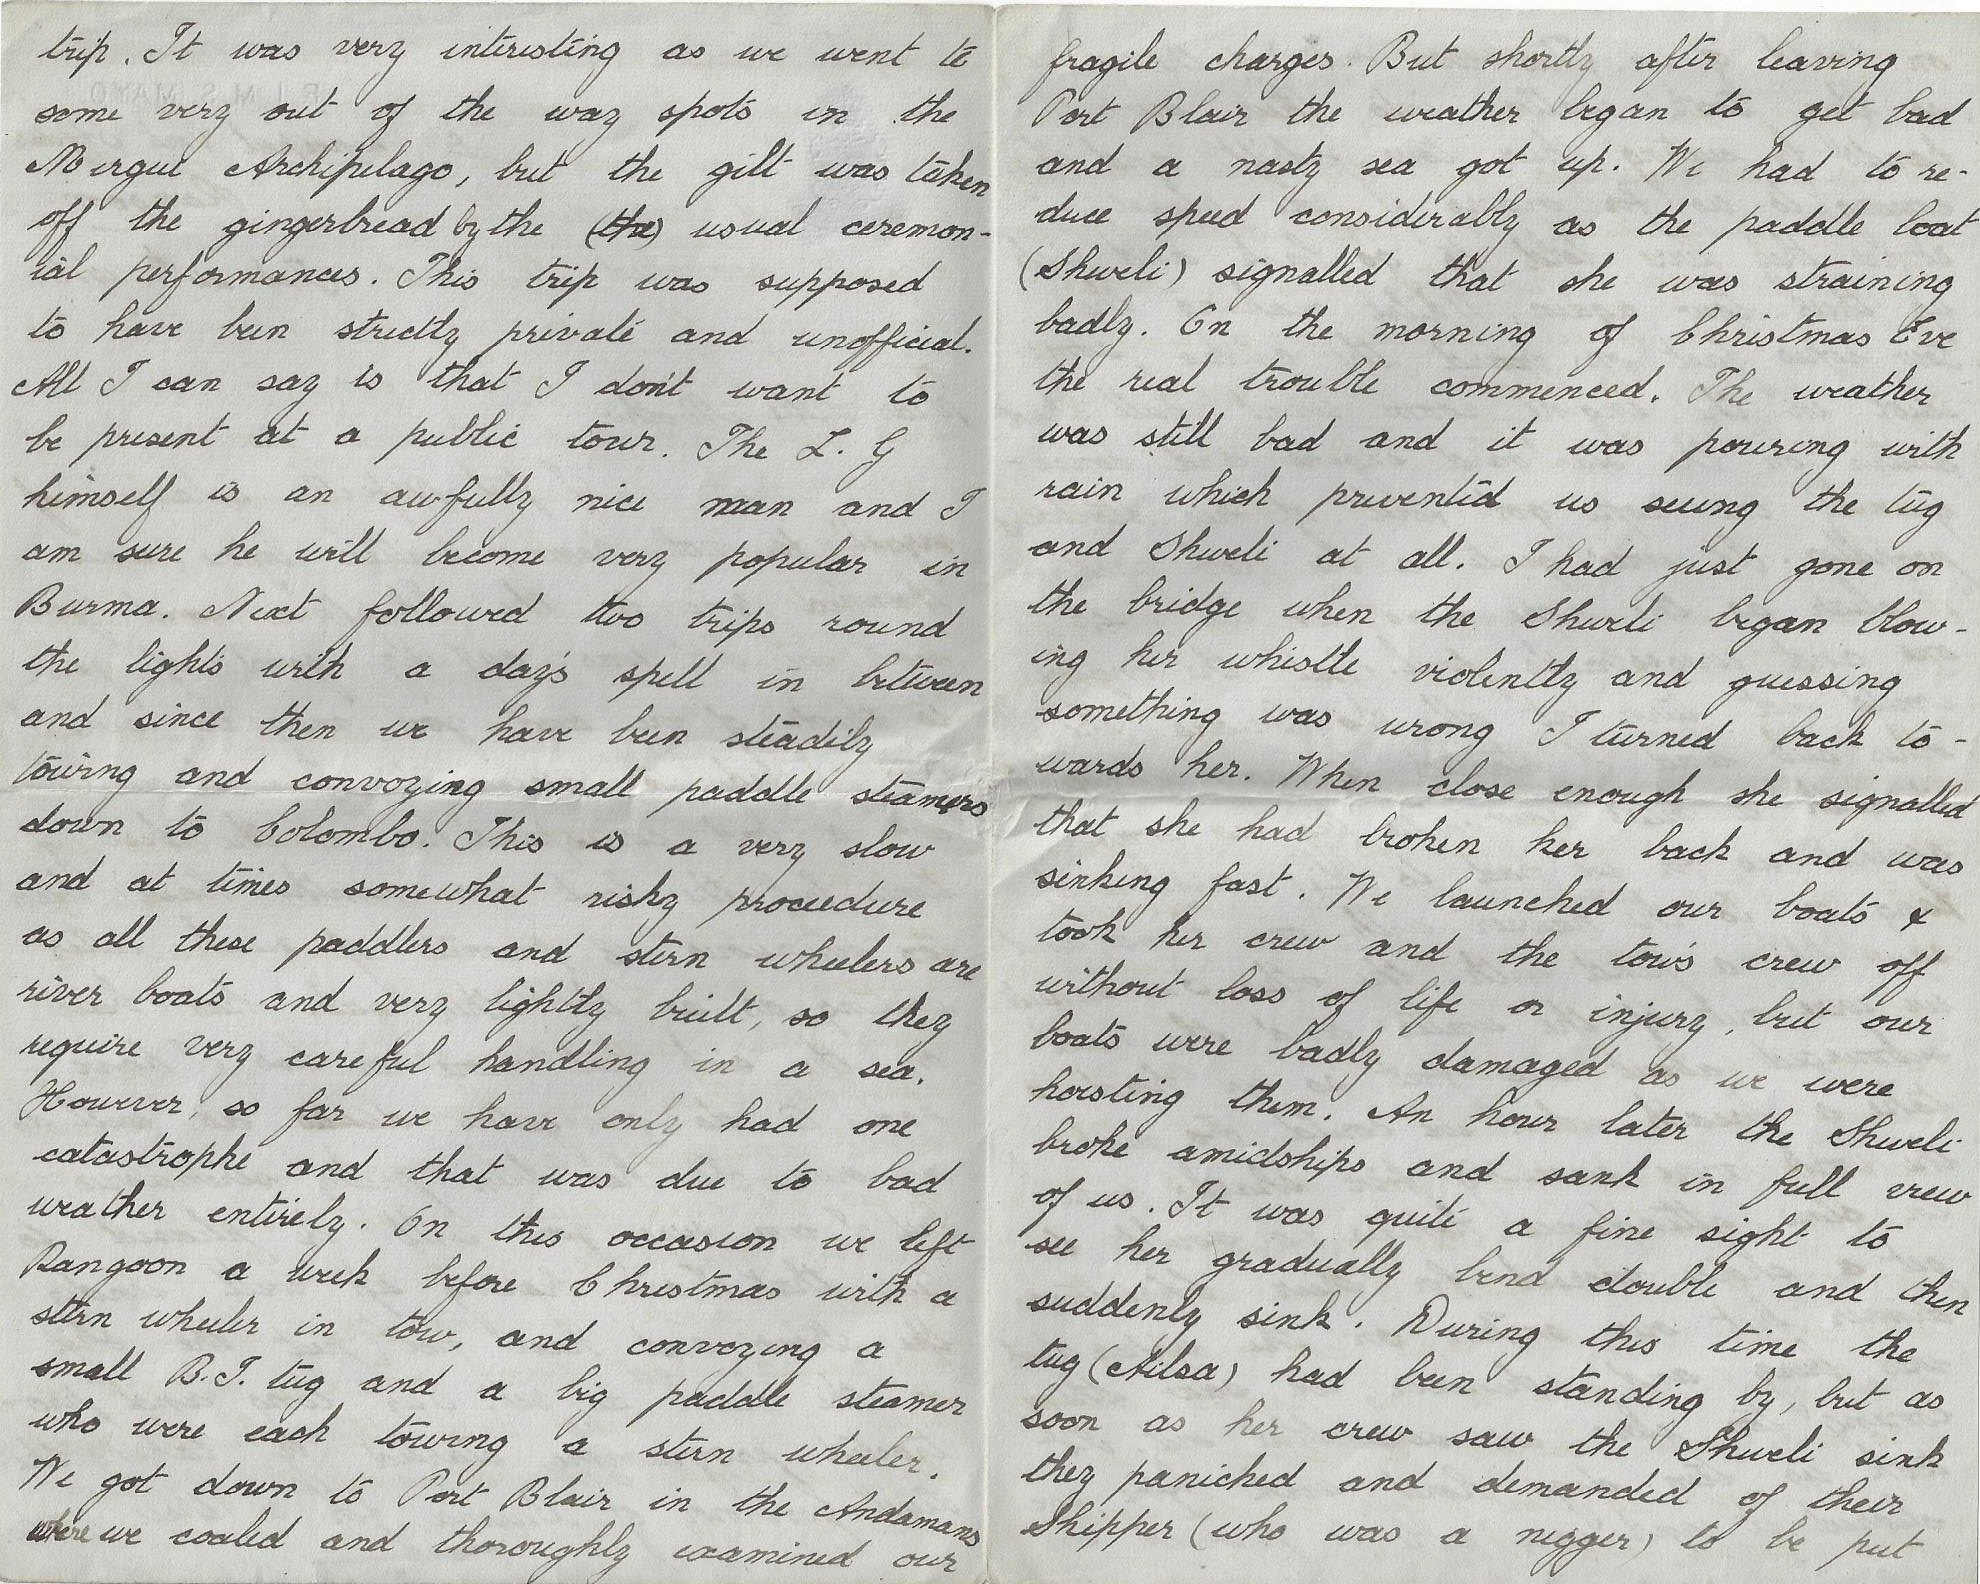 trip. It was very interesting as we went to
some very out of the way spots in the
Mergui Archipelago, but the gilt was taken
off the gingerbread by the (the) usual ceremon-
ial performances. This trip was supposed
to have been strictly private and unofficial.
All I can say is that I don't want to
be present at a public tour. The L. G
himself is an awfully nice man and I
am sure he will become very popular in
Burma. Next followed two trips round
the lights with a day's spell in between
and since then we have been steadily
towing and convoying small paddle steamers
down to Colombo. This is a very slow
and at times somewhat risky proceedure
as all these paddlers and stern wheelers are
river boats and very lightly built, so they
require very careful handling in a sea.
However, so far we have only had one
catastrophe and that was due to bad
weather entirely. On this occasion we left
Rangoon a week before Christmas with a
stern wheeler in tow, and convoying a
small B.I. tug and a big paddle steamer
who were each towing a stern wheeler.
We got down to Port Blair in the Andamans
where we coaled and thoroughly examined our
fragile charges. But shortly after leaving
Port Blair the weather began to get bad
and a nasty sea got up. We had to re-
duce speed considerably as the paddle boat
(Shweli) signalled that she was straining
badly. On the morning of Christmas Eve
the real trouble commenced. The weather
was still bad and it was pouring with
rain which prevented us seeing the tug
and Shweli at all. I had just gone on
the bridge when the Shweli began blow-
ing her whistle violently and guessing
something was wrong I turned back to-
wards her. When close enough she signalled
that she had broken her back and was
sinking fast. We launched our boats &
took her crew and the tow's crew off
without loss of life or injury, but our
boats were badly damaged as we were
hoisting them. An hour later the Shweli
broke amidships and sank in full view
of us. It was quite a fine sight to
see her gradually bend double and then
suddenly sink. During this time the
tug (Ailsa) had been standing by, but as
soon as her crew saw the Shweli sink
they panicked and demanded of their
Skipper (who was a nigger) to be put